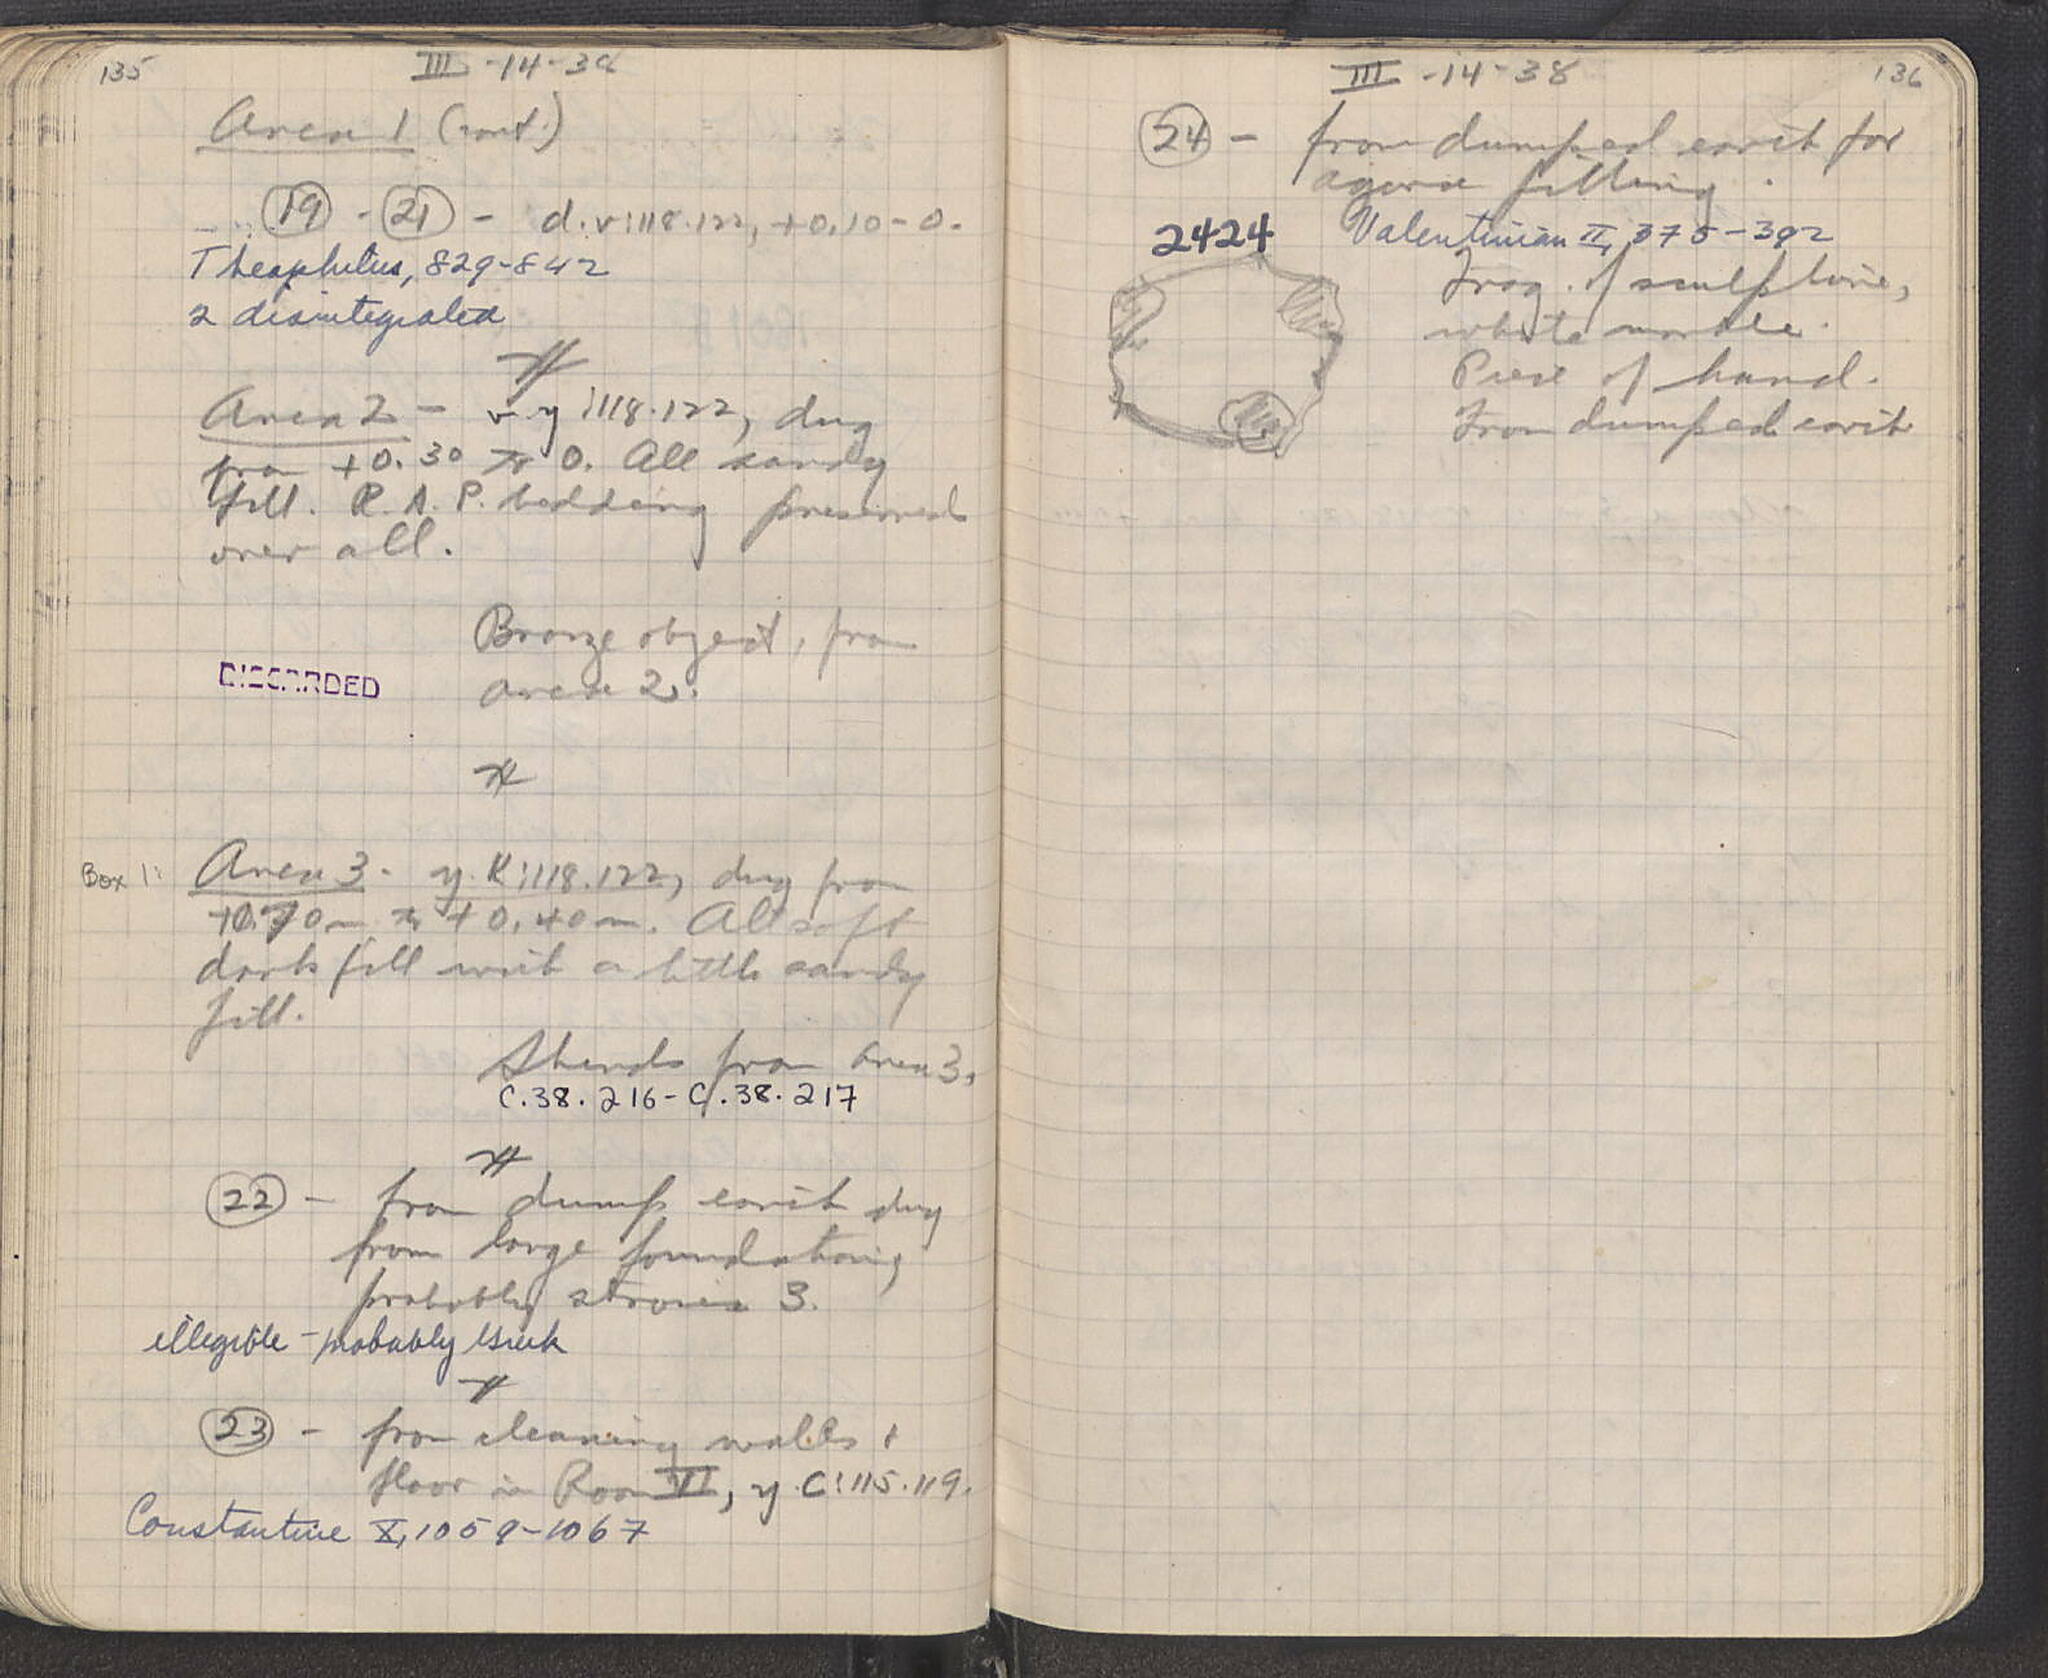 135
III -14-38
Area 1 (cont.)
19 - 21 - d.v:118.122, +0.10-0.
Theophilus, 829-842
2 disintegrated
Area 2 - v.y:118.122, dug
from +0.30 to 0. All sandy
fill. R.A.P. bedding preserved
over all.
Bronze object, from
area 2.
DISCARDED
Box 1:
Area 3. y.K:118.122, dug from
+0.70m to +0.40m. All soft
dark fill with a little sandy
fill.
Sherds from Area 3.
C.38.216 - C.38.217
22 - from dump earth dug
from large foundation,
probably stroses 3.
illegible - probably Greek
23 - from cleaning walls +
floor in Room VI, y.C:115.119.
Constantine X, 1059-1067
III -14-38
136
24 - from dumped earth for
agora filling.
Valentinian II, 375-392
2424
Frag. of sculpture,
white marble.
Piece of hand.
From dumped earth